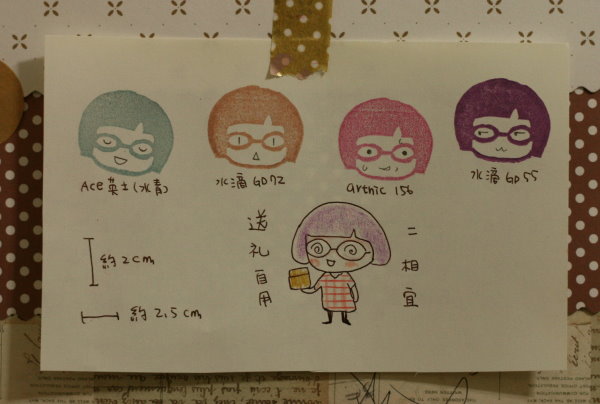 Ace 英士(水青)
水滴 GD72
artnic 156
水滴 GD55
約2cm
約2.5cm
送礼自用
二相宜